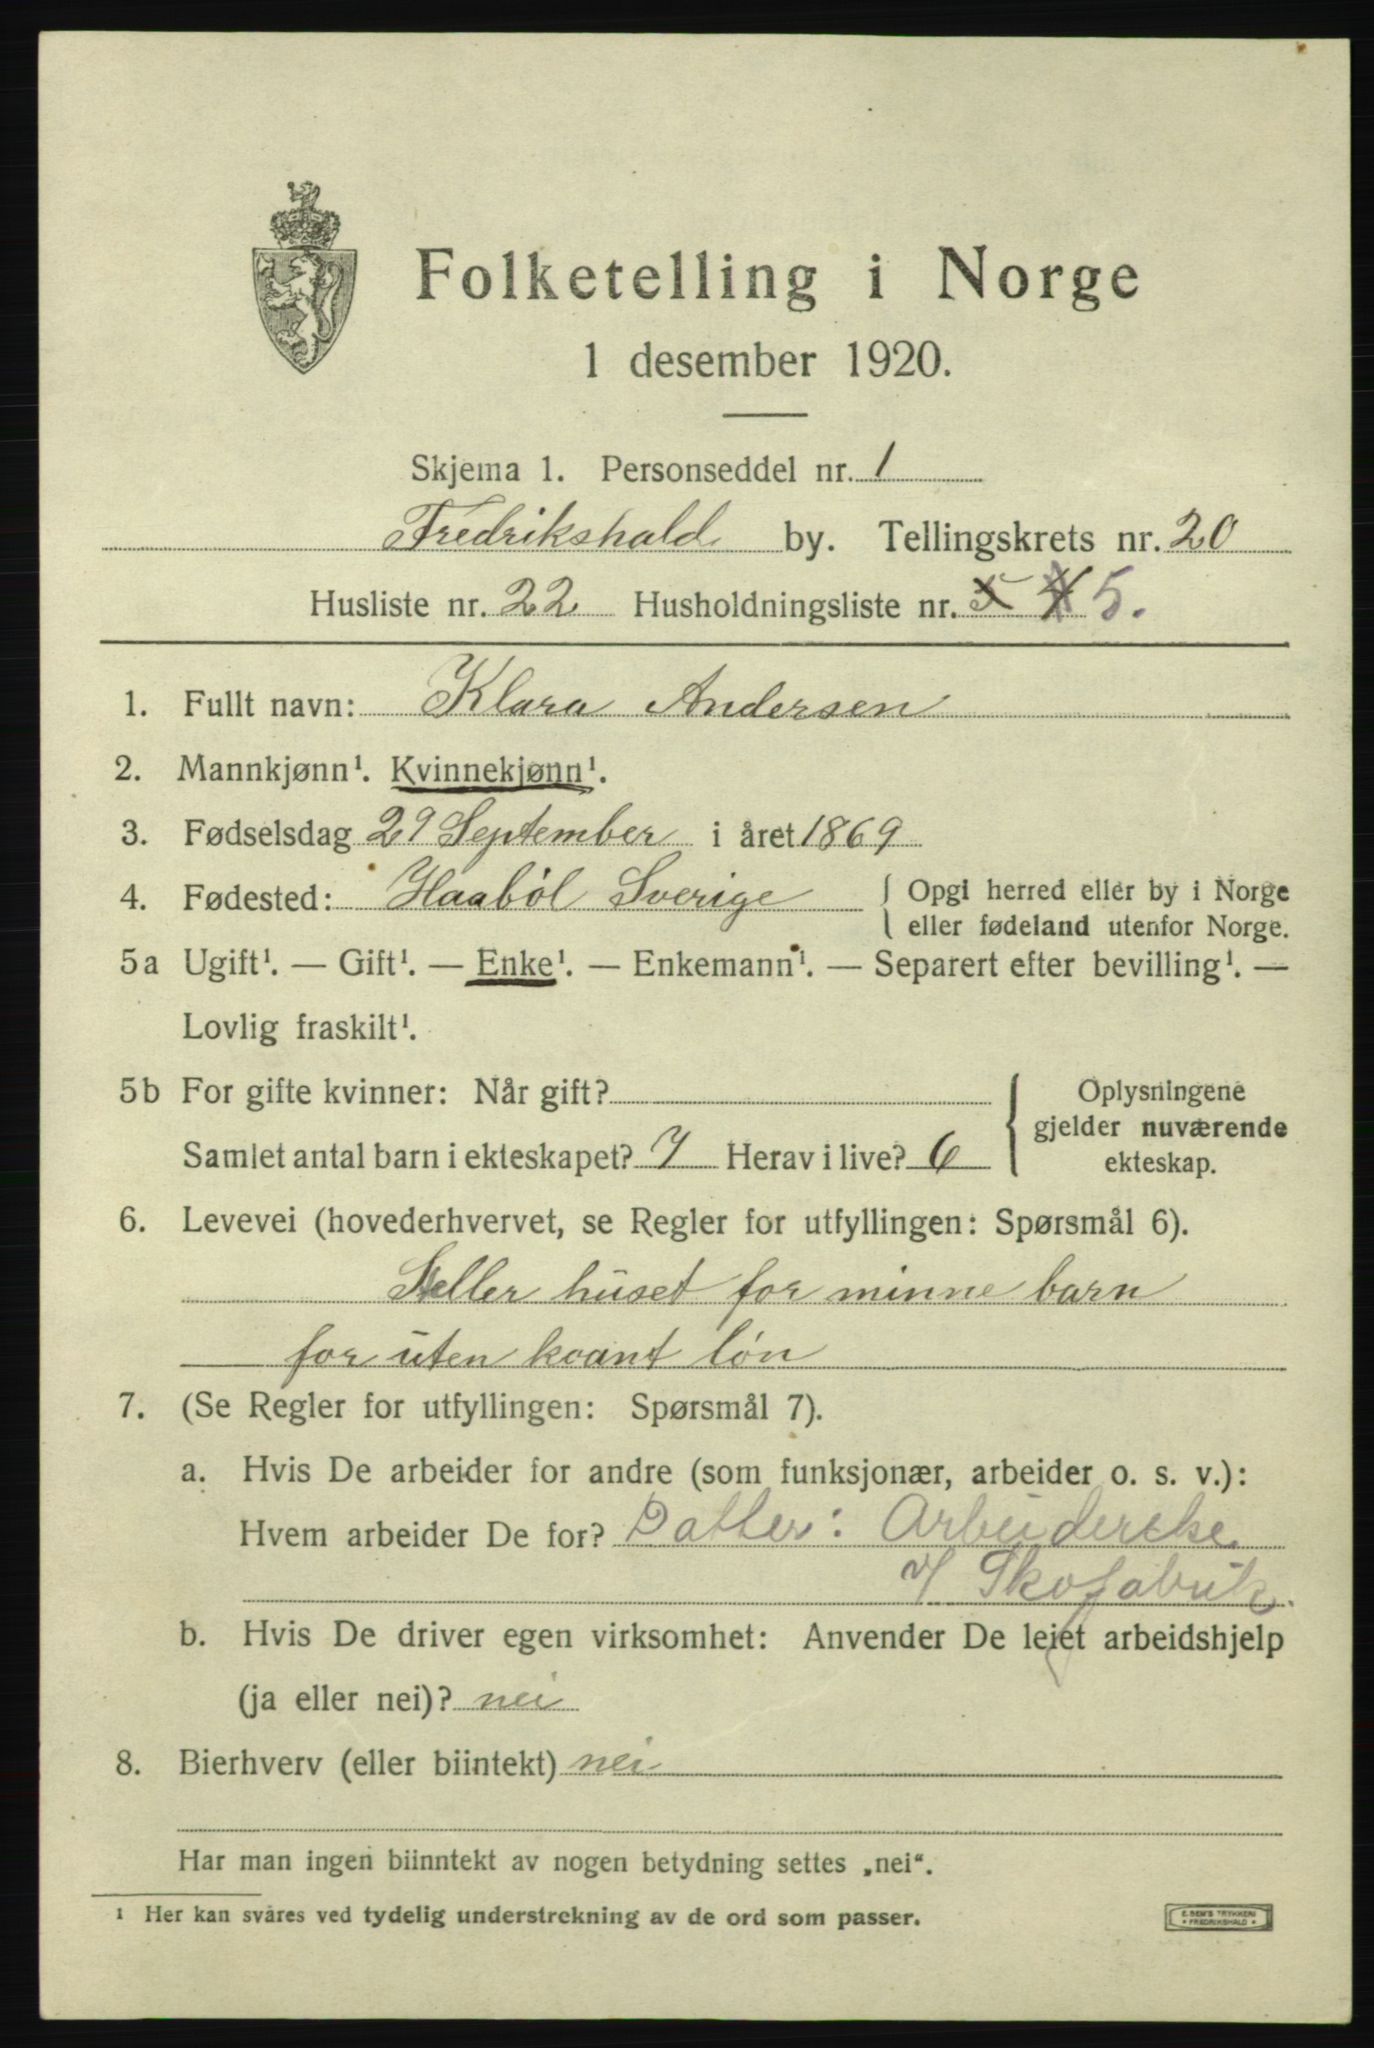 Folketelling i Norge
1 desember 1920.
Skjema 1. Personseddel nr. 1
Fredrikshald by. Tellingskrets nr. 20
Husliste nr. 22 Husholdningsliste nr. 5.
1. Fullt navn: Klara Andersen
2. Mannkjønn¹. Kvinnekjønn¹.
3. Fødselsdag 29 September i året 1869
4. Fødested: Haaböl Sverige { Opgi herred eller by i Norge
eller fødeland utenfor Norge.
5a Ugift¹. — Gift¹. — Enke¹. — Enkemann¹. — Separert efter bevilling¹. —
Lovlig fraskilt¹.
5b For gifte kvinner: Når gift? { Oplysningene
gjelder nuværende
Samlet antal barn i ekteskapet? 7 Herav i live? 6 ekteskap.
6. Levevei (hovederhvervet, se Regler for utfyllingen: Spørsmål 6).
Steller huset for minne barn
for uten kvant løn
7. (Se Regler for utfyllingen: Spørsmål 7).
a. Hvis De arbeider for andre (som funksjonær, arbeider o. s. v.):
Hvem arbeider De for? Datter: Arbeiderske
i/ Skofabrik.
b. Hvis De driver egen virksomhet: Anvender De leiet arbeidshjelp
(ja eller nei)? nei
8. Bierhverv (eller biintekt) nei
Har man ingen biinntekt av nogen betydning settes „nei“.
¹ Her kan svares ved tydelig understrekning av de ord som passer.
E. SEM'S TRYKKERI
• FREDRIKSHALD •